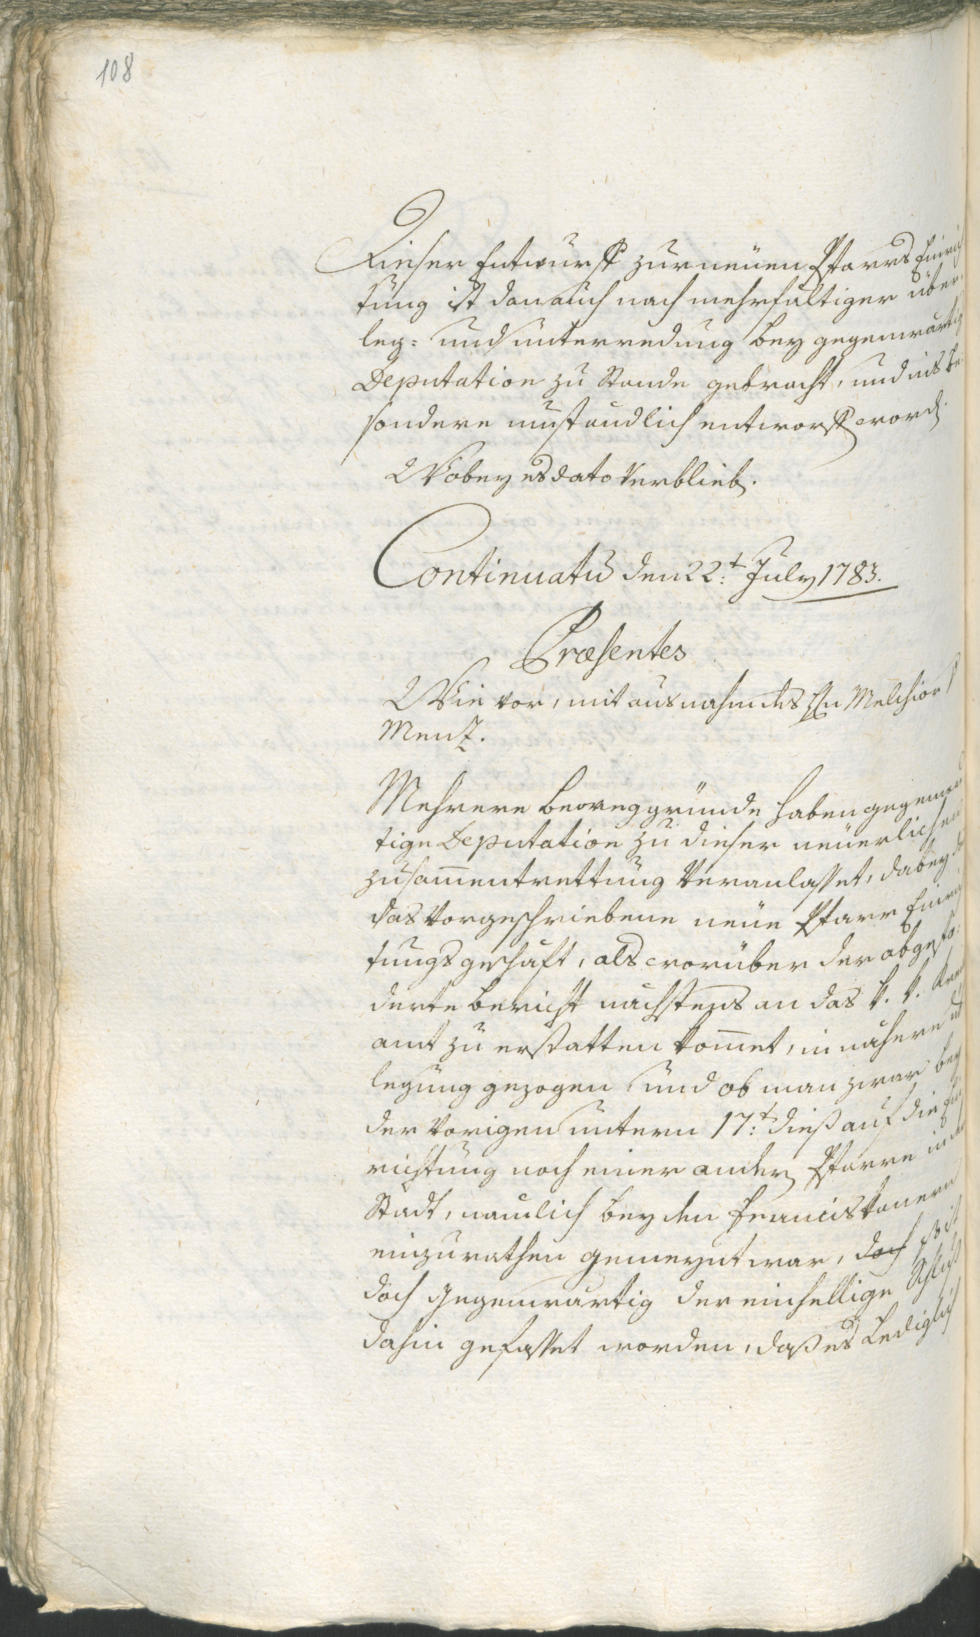 108
Dieser Entwurff zur neuen Pfarrs Einrich
tung ist dan auch nach mehrfältiger über
leg: und unterredung bey gegenwärtig
Deputation zu Stande gebracht, und ins be
sondere umständlich entworff word.
Wobey es dato verblieb.
Continuatū den 22:t July 1783.
Præsentes
Wie vor, mit ausnahm des Hn Melchior
Menz.
Mehrere beweggründe haben gegenwär
tige Deputation zu dieser neüerlichen
zusam̄entrettung veranlasset, dabey
das vorgeschriebene neüe Pfarr Einrich
tungs geschäft, als worüber der abgefo
derte bericht nächstens an das k. k. Kreis
amt zu erstatten kom̄et, in nähere
legung gezogen und ob man zwar bey
der vorigen untern 17:t dieß auf die Ein
richtung noch einer andern Pfarre in der
Stadt, nämlich bey den Franciskanern
einzurathen gemeynt war, doch ist
doch gegenwärtig der einhellige Schluß
dahin gefasset worden, daß es Lediglich